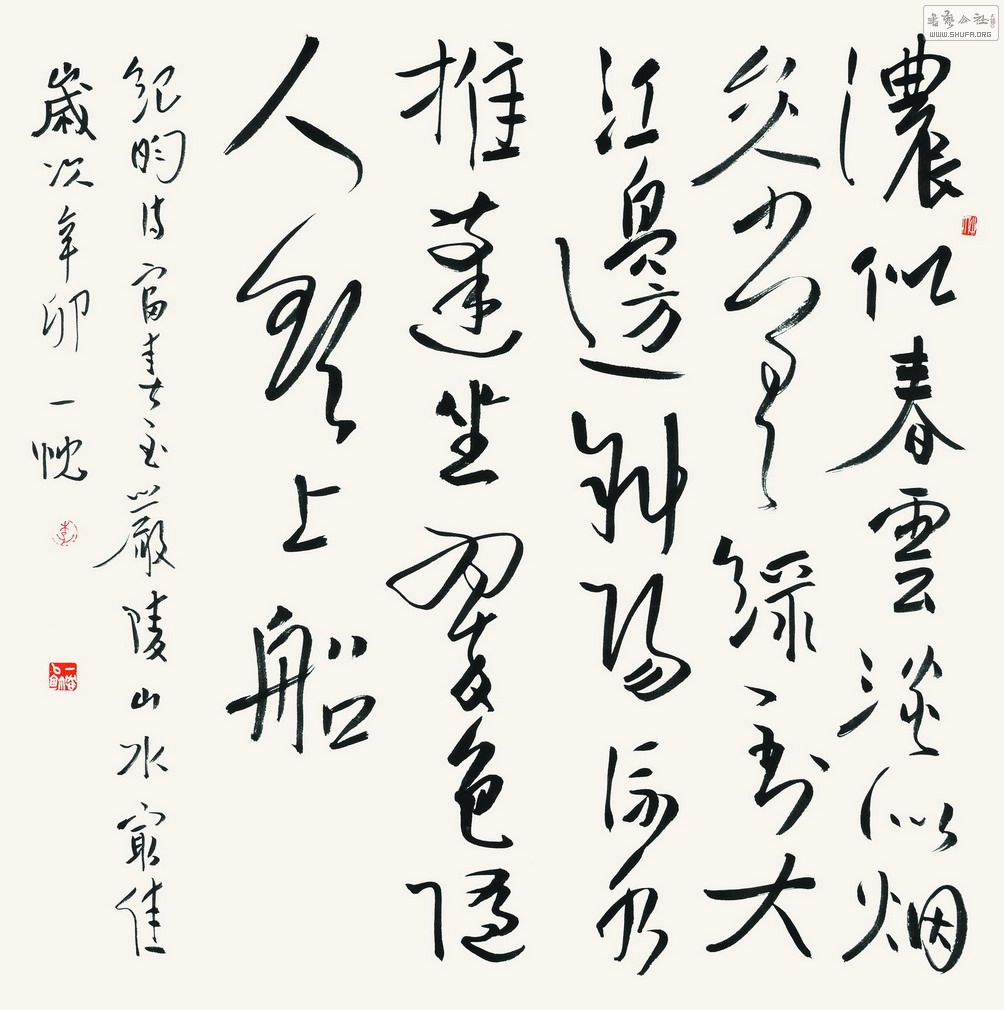 濃似春雲淡似烟
參差綠到大
江邊斜陽流水
推蓬坐翠色隨
人欲上船
紀昀詩富春至嚴陵山水最佳
歲次辛卯 一忱
書藝公社
WWW.SHUFA.ORG